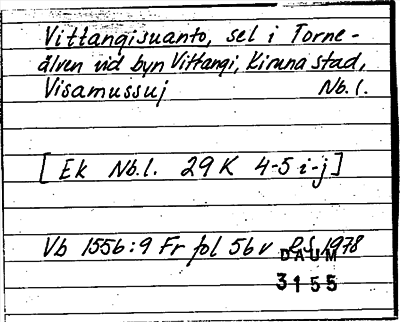 Vittangisuanto, sel i Torne-
älven vid byn Vittangi, Kiruna stad,
Visamussuj Nb.l.
[Ek Nb.l. 29 K 4-5 i-j]
Vb 1556:9 Fr fol 56 v 1978
DAUM
3155